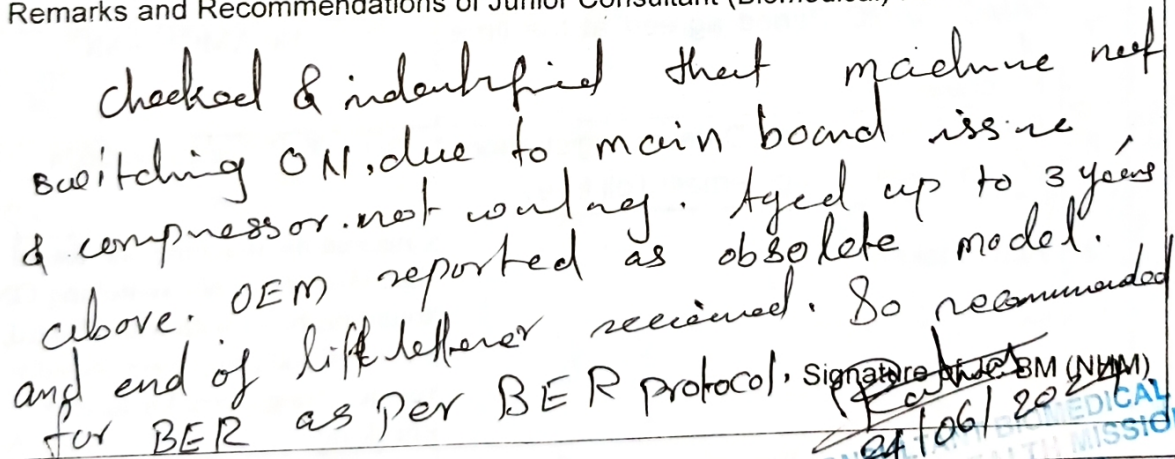 Remarks and Recommendations of Junior Consultant (Biomedical)
checked & indentified that machine not
switching ON, due to main board issue
& compressor. not working. Aged up to 3 years
above. OEM reported as obsolete model.
and end of life letter received. So recommended
for BER as Per BER protocol. Signature of JC BM (NHM)
/06/2024
BIOMEDICAL
HEALTH MISSION